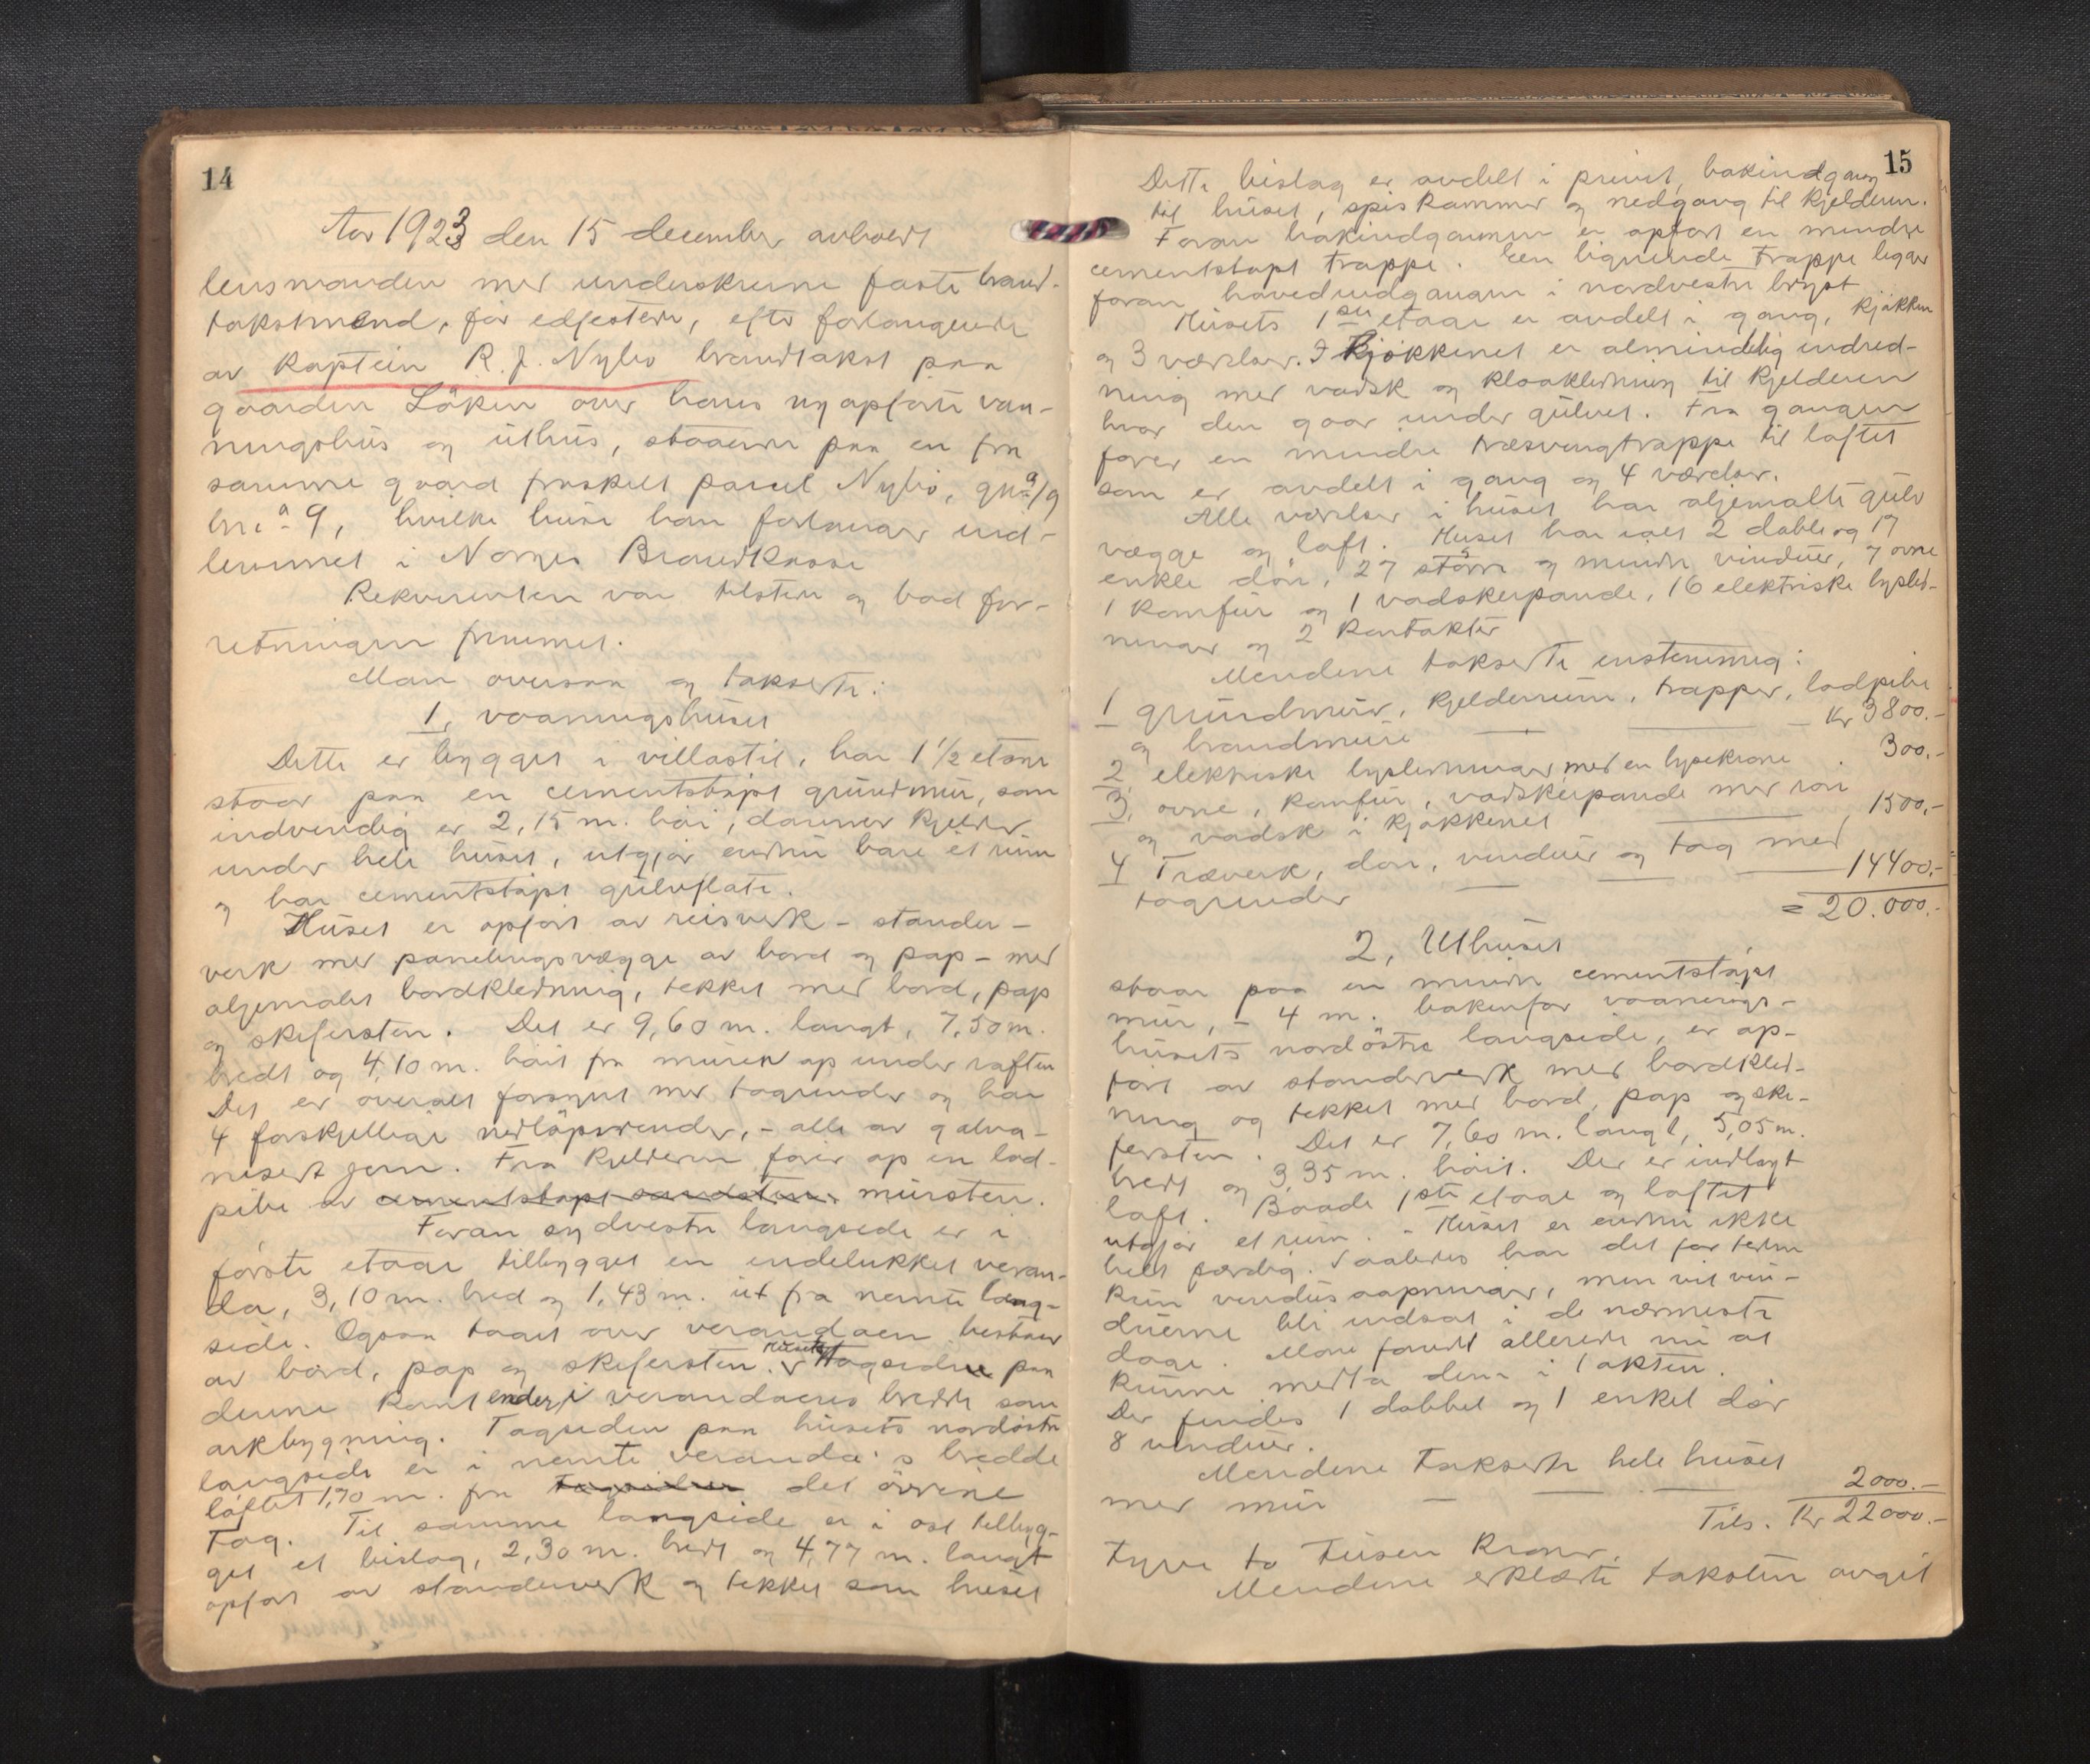 14
Aar 1923 den 15 december avholdt
lensmanden med underskrevne faste brand-
takstmænd, før edfestede, efter forlangende
av kaptein R. J. Nybø brandtakst paa
gaarden Löken over hans nyopførte vaa-
ningshus og uthus, staaende paa en fra
samme gaard fraskilt parcel Nybø, gna 19
brna 9, hvilke huse han forlanger ind-
lemmet i Norges Brandkasse
Rekvirenten var tilstede og bad for-
retningen fremmet.
Man oversaa og takserte:
1, vaaningshuset
Dette er bygget i villastil, har 1 1/2 etage
staar paa en cementstøpt grundmur, som
indvendig er 2,15 m. høi, danner kjelder
under hele huset, utgjør endnu bare et rum
og har cementstøpt gulvflate.
Huset er opført av reisverk - stender-
verk med panelingsvægge av bord og pap - med
oljemalet bordklædning, tekket med bord, pap
og skifersten. Det er 9,60 m. langt, 7,50 m.
bredt og 4,10 m. høit fra muren op under raften
Det er overalt forsynet med tagrender og har
4 forskjellige nedløpsrender, - alle av galva-
nisert jern. Fra kjelderen fører op en lod-
pibe av cementstøpt sandsten mursten.
Foran sydvestre langside er i
første etage tilbygget en indelukket veran-
da, 3,10 m. bred og 1,43 m. ut fra nevnte lang-
side. Ogsaa taget over verandaen bestaar
av bord, pap og skifersten. Husets tagside paa
denne kant ender i verandaens bredde som
arkbygning. Tagsiden paa husets nordøstre
langside er i nevnte veranda's bredde
løftet 1,70 m. fra tagsiden det øvrige
tag. Til samme langside er i øst tilbyg-
get et bislag, 2,30 m. bredt og 4,77 m. langt
opført av stenderverk og tekket som huset
15
Dette bislag er avdelt i privet, bakindgang
til huset, spiskammer og nedgang til kjelderen.
Foran bakindgangen er opført en mindre
cementstøpt trappe. En lignende trappe ligger
foran hovedindgangen i nordvestre bryst
Husets 1ste etage er avdelt i gang, kjøkken
og 3 værelser. I kjøkkenet er almindelig indred-
ning med vadsk og kloakledning til kjelderen
hvor den gaar under gulvet. Fra gangen
fører en mindre træsvingtrappe til loftet
som er avdelt i gang og 4 værelser.
Alle værelser i huset har oljemalte gulv
vægge og loft. Huset har ialt 2 doble og 17
enkle dør, 27 større og mindre vinduer, 7 ovne
1 komfur og 1 vadskerpande, 16 elektriske lysled-
ninger og 2 kontakter
Mendene takserte enstemmig:
1 grundmur, kjelderrum, trapper, lodpibe
og brandmure — — — Kr 3800.-
2, elektriske lysledninger med en lysekrone . 300.-
3, ovne, komfur, vadskerpande med rør
og vadsk i kjøkkenet — 1500,-
4 Træverk, dør, vinduer og tag med
tagrender — — — 14400,-
= 20.000.-
2, Uthuset
staar paa en mindre cementstøpt
mur, - 4 m. bakenfor vaanings-
husets nordöstre langside, er op-
ført av stenderverk med bordkled-
ning og tekket med bord, pap og ski-
fersten. Det er 7,60 m. langt, 5,05 m.
bredt og 3,35 m. høit. Der er indlagt
loft. Baade 1ste etage og loftet
utgjør et rum. - Huset er endnu ikke
helt færdig. Saaledes har det for tiden
kun vindusaapninger, men vil vin-
duerne bli indsat i de nærmeste
dage. Man fandt allerede nu at
kunne medta dem i taksten.
Der findes 1 dobbel og 1 enkel dør
8 vinduer.
Mendene takserte hele huset
med mur — — — 2000.-
Tils. Kr 22000.-
Tyve to tusen kroner.
Mendene erklærte taksten avgit